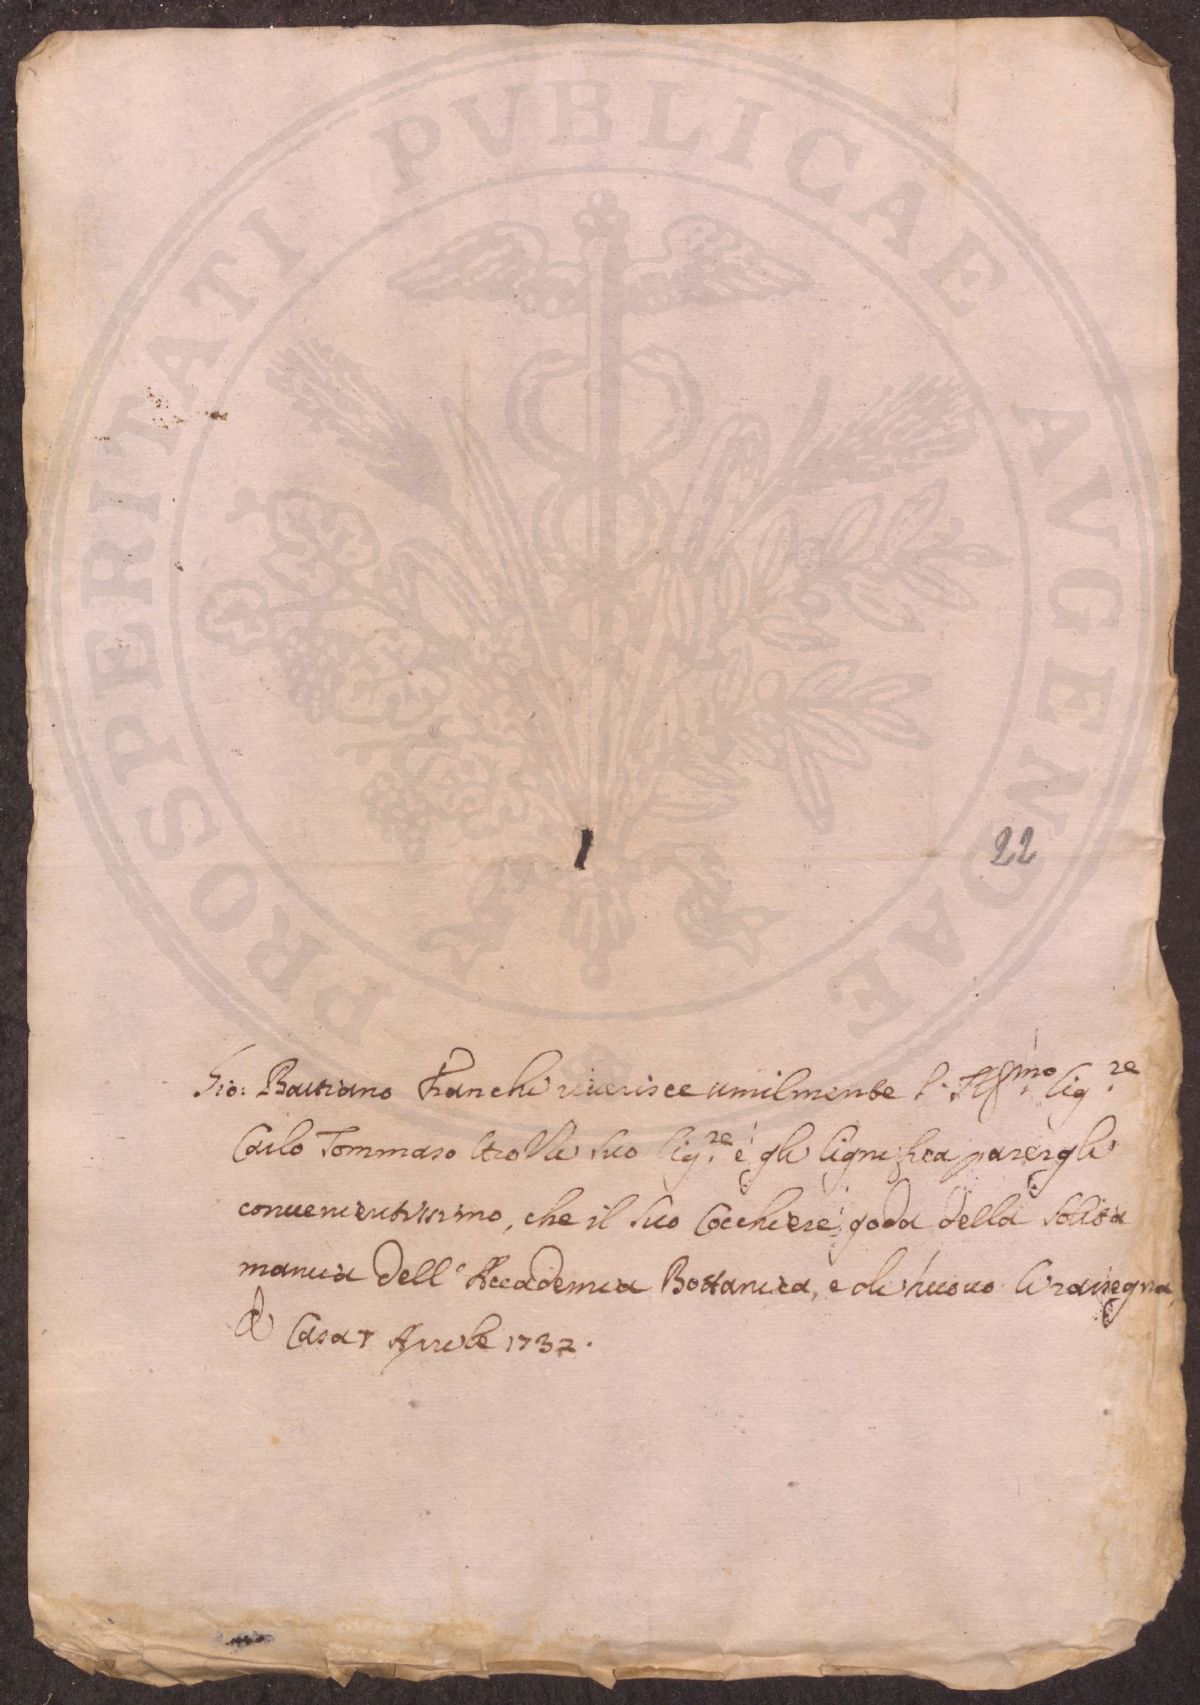 PROSPERITATI PVBLICAE AVGENDAE
22
Gio: Battiano Franchi riuerisce umilmente l' Ill.mo Sig.re
Carlo Tommaso suo Sig.re e gli significa parergli
conuenientissimo, che il suo Cocchiere goda della solita
mancia dell' Accademia Bottanica, e di nuouo li rassegna,
di Casa Aprile 1732.